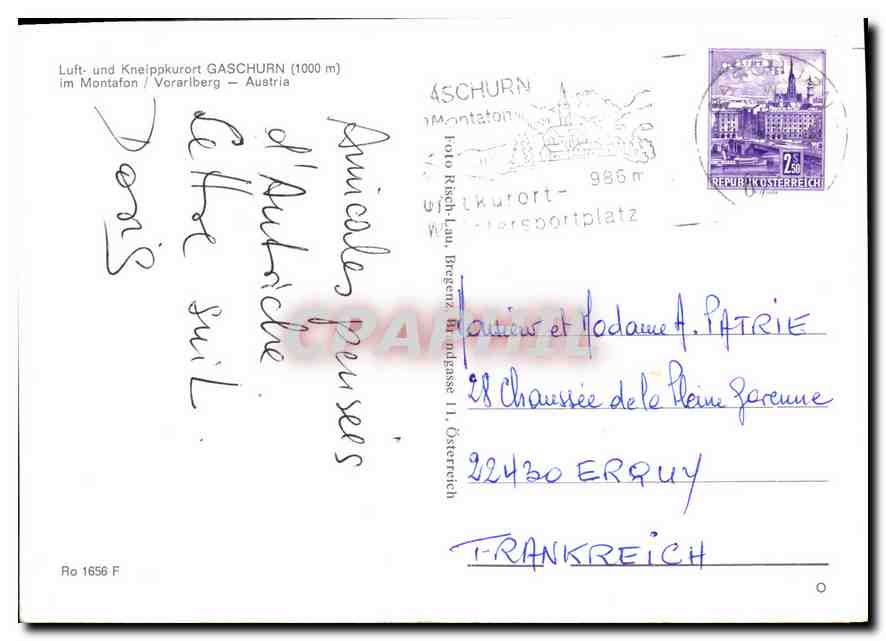 Luft- und Kneippkurort GASCHURN (1000 m)
im Montafon / Vorarlberg — Austria
Amicales pensées
d'Autriche
Lettre suit
Doris
Foto Risch-Lau, Bregenz, Österreich
ASCHURN
Montafon
986 m
Luftkurort-
Wintersportplatz
LINZ
2.50
REPUBLIK ÖSTERREICH
CPAPHIL
Monsieur et Madame A. PATRIE
28 Chaussée de la Pleine Garenne
22430 ERQUY
FRANKREICH
Ro 1656 F